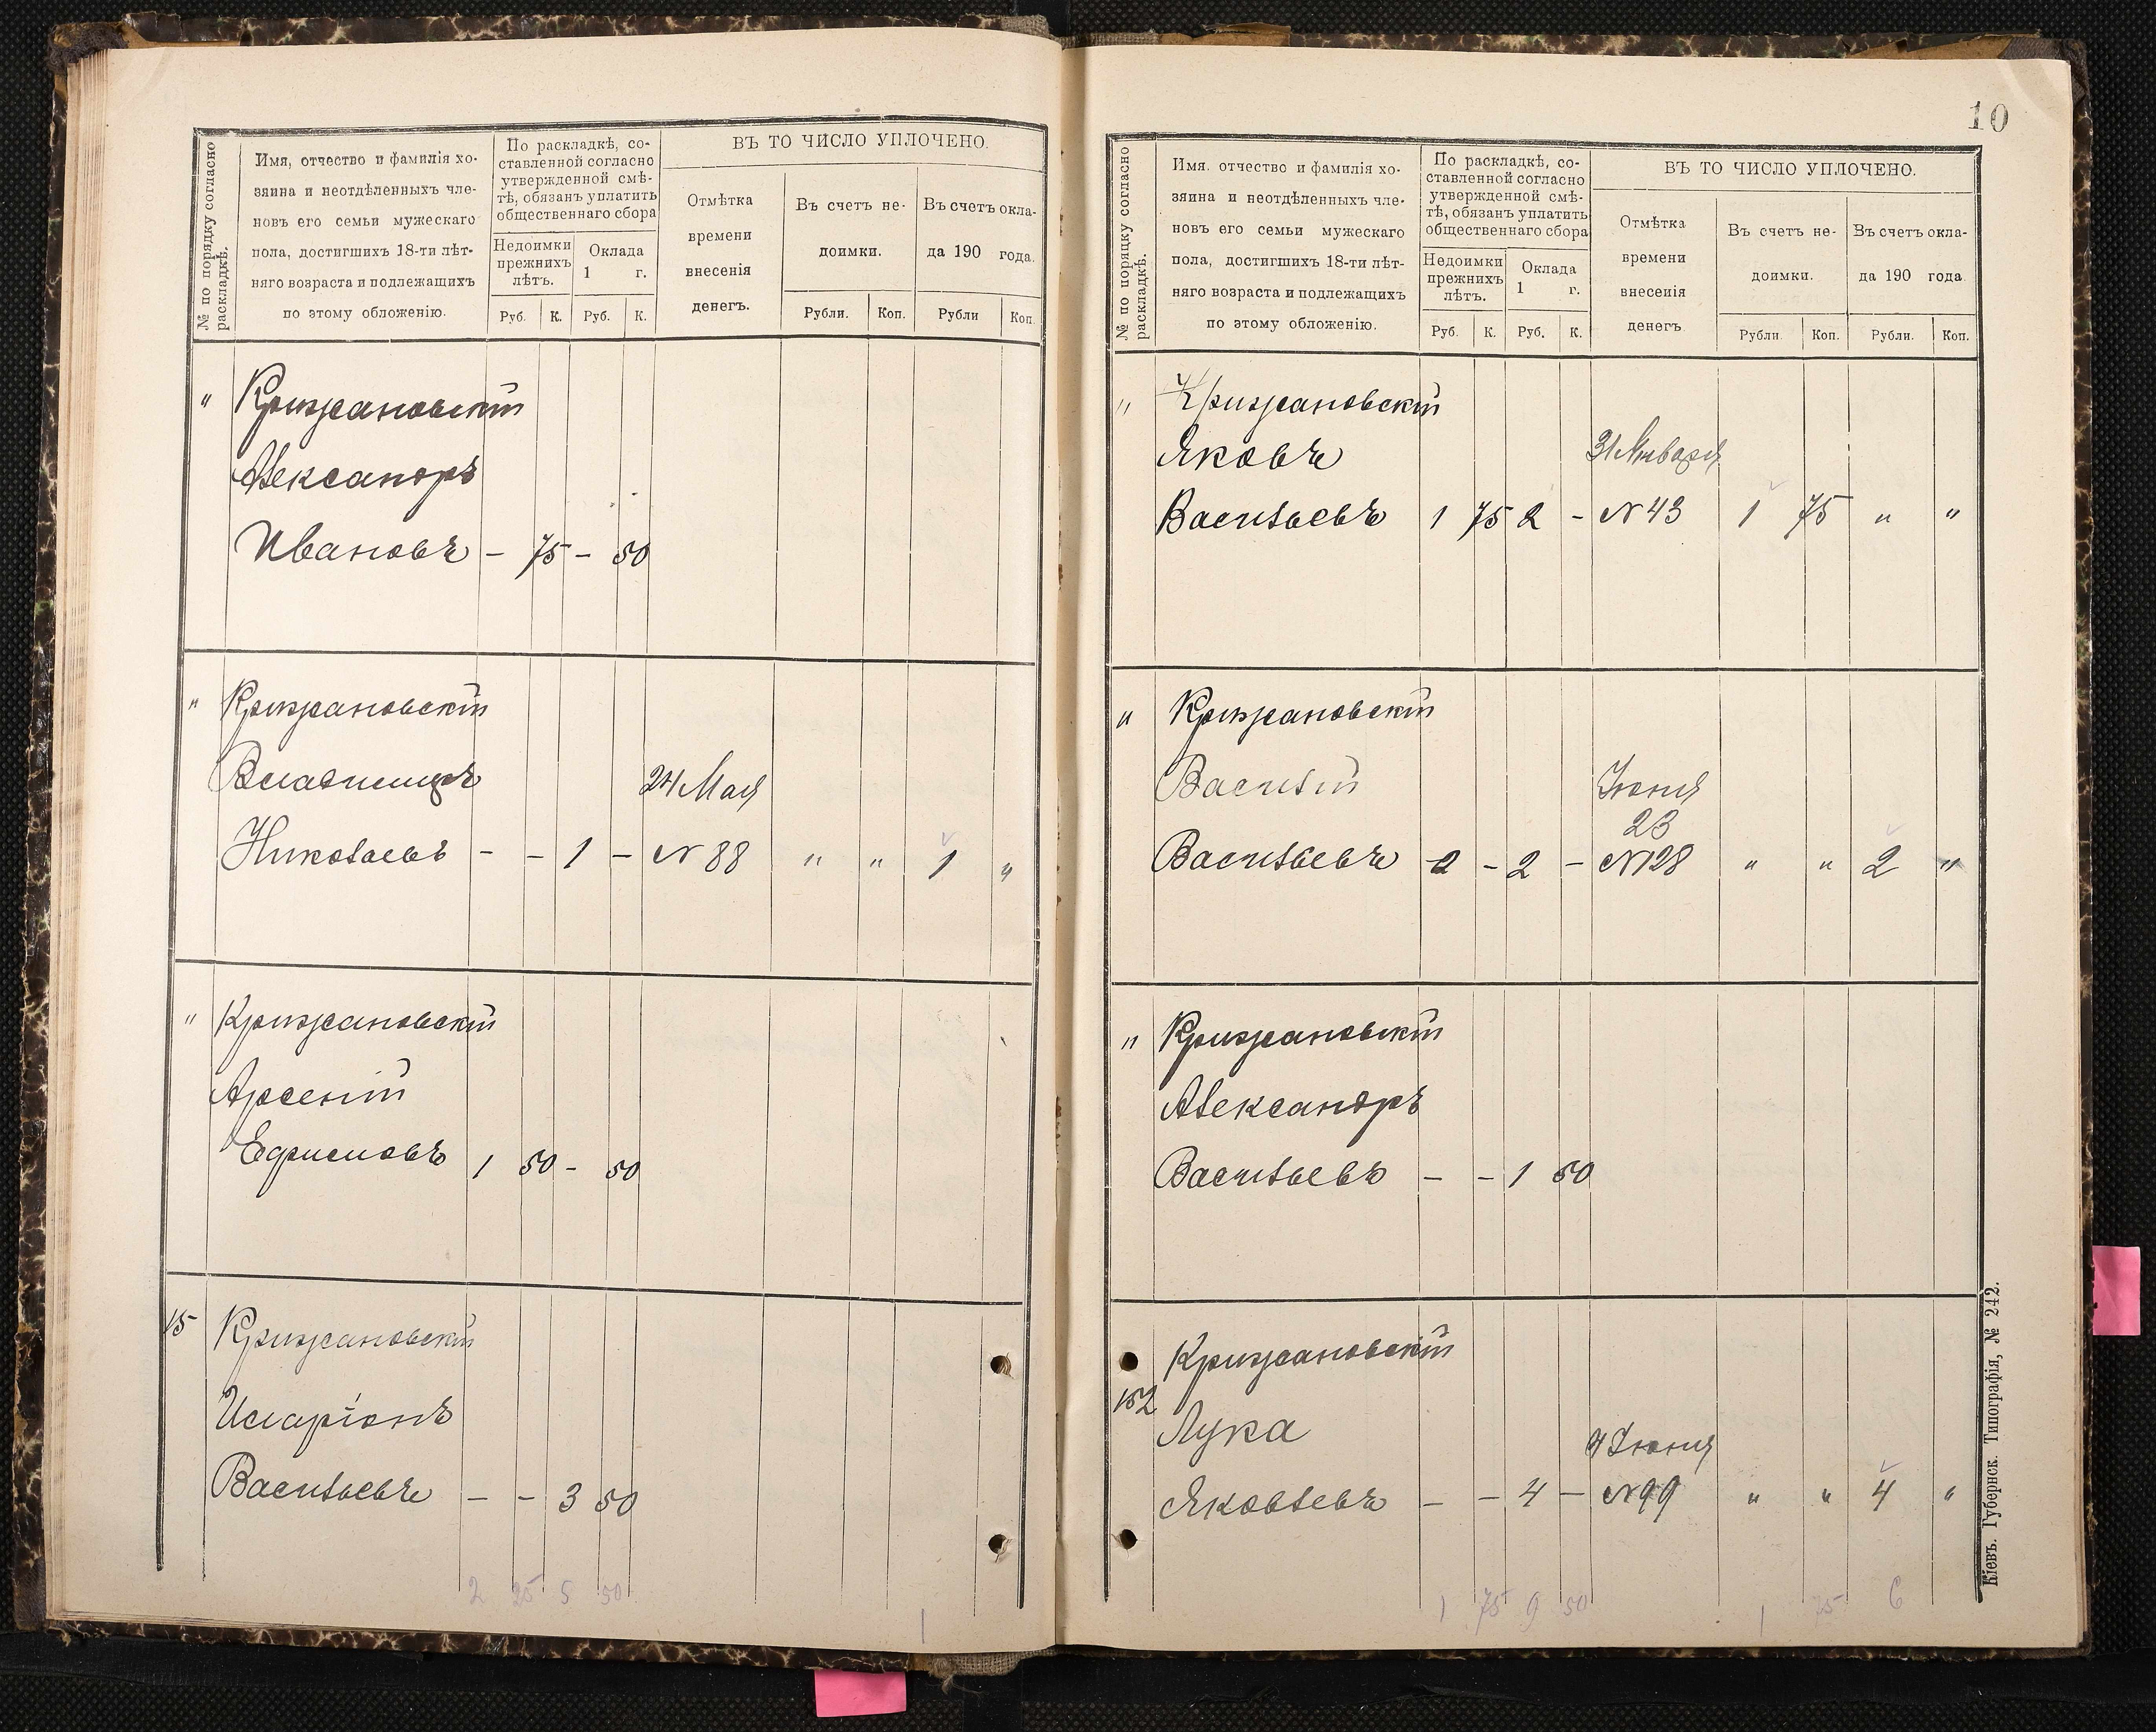 № по порядку согласно
раскладкѣ.
Имя, отчество и фамилія хо-
зяина и неотдѣленныхъ чле-
новъ его семьи мужескаго
пола, достигшихъ 18-ти лѣт-
няго возраста и подлежащихъ
по этому обложенію.
По раскладкѣ, со-
ставленной согласно
утвержденной смѣ-
тѣ, обязанъ уплатить
общественнаго сбора
Недоимки
прежнихъ
лѣтъ.
Оклада
1 г.
Руб. К. Руб. К.
ВЪ ТО ЧИСЛО УПЛОЧЕНО.
Отмѣтка
времени
внесенія
денегъ.
Въ счетъ не-
доимки.
Въ счетъ окла-
да 190 года.
Рубли. Коп. Рубли Коп.
" Крижановскій
Александръ
Ивановъ - 75 - 50
" Крижановскій
Владиміръ 24 Мая
Николаевъ - - 1 - № 88 " " 1 "
" Крижановскій
Арсеній
Ефримовъ 1 50 - 50
15 Крижановскій
Иларіонъ
Васильевъ - - 3 50
2 25 5 50 1
10
№ по порядку согласно
раскладкѣ.
Имя. отчество и фамилія хо-
зяина и неотдѣленныхъ чле-
новъ его семьи мужескаго
пола, достигшихъ 18-ти лѣт-
няго возраста и подлежащихъ
по этому обложенію.
По раскладкѣ, со-
ставленной согласно
утвержденной смѣ-
тѣ, обязанъ уплатить
общественнаго сбора
Недоимки
прежнихъ
лѣтъ.
Оклада
1 г.
Руб. К. Руб. К.
ВЪ ТО ЧИСЛО УПЛОЧЕНО.
Отмѣтка
времени
внесенія
денегъ
Въ счетъ не-
доимки.
Въ счетъ окла-
да 190 года
Рубли. Коп. Рубли. Коп.
" Крижановскій
Яковъ 31 Января
Васильевъ 1 75 2 - № 43 1 75 " "
" Крижановскій
Василій Іюня
23
Васильевъ 2 - 2 - №128 " " 2 "
" Крижановскій
Александръ
Васильевъ - - 1 50
Крижановскій
152
Лука 4 Іюня
Яковлевъ - - 4 - №99 " " 4 "
1 75 9 50 1 75 6
Кіевъ. Губернск. Типографія, № 242.